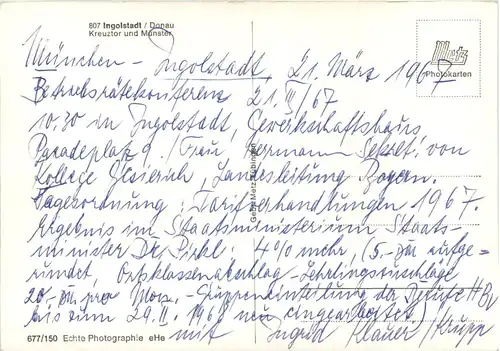 807 Ingolstadt / Donau
Kreuztor und Münster
Metz
Photokarten
München - Ingolstadt, 21. März 1967
Betriebsrätekonferenz 21.III/67
10.30 in Ingolstadt, Gewerkschaftshaus
Paradeplatz 9. / Frau Hermann Sekret. von
Kollege Landesleitung Bayern.
Tagesordnung: Tarifverhandlungen 1967.
Ergebnis im Staatsministerium Staats-
minister Dr. Pirkl: 4% mehr, (5.- aufge-
rundet, Ortsklassenabschlag - Lehrlingsvorschläge
20.- pro Mon. - Gruppeneinteilung der Berufe HBV
bis zum 29.II. 1968 neu eingearbeitet)
mit Ingrid Klauer / Krupp
Gebr. Metz Tübingen
677/150 Echte Photographie eHe